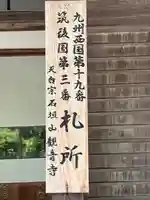 九州西国第十九番
筑後国第三番
札所
天台宗石垣山観音寺